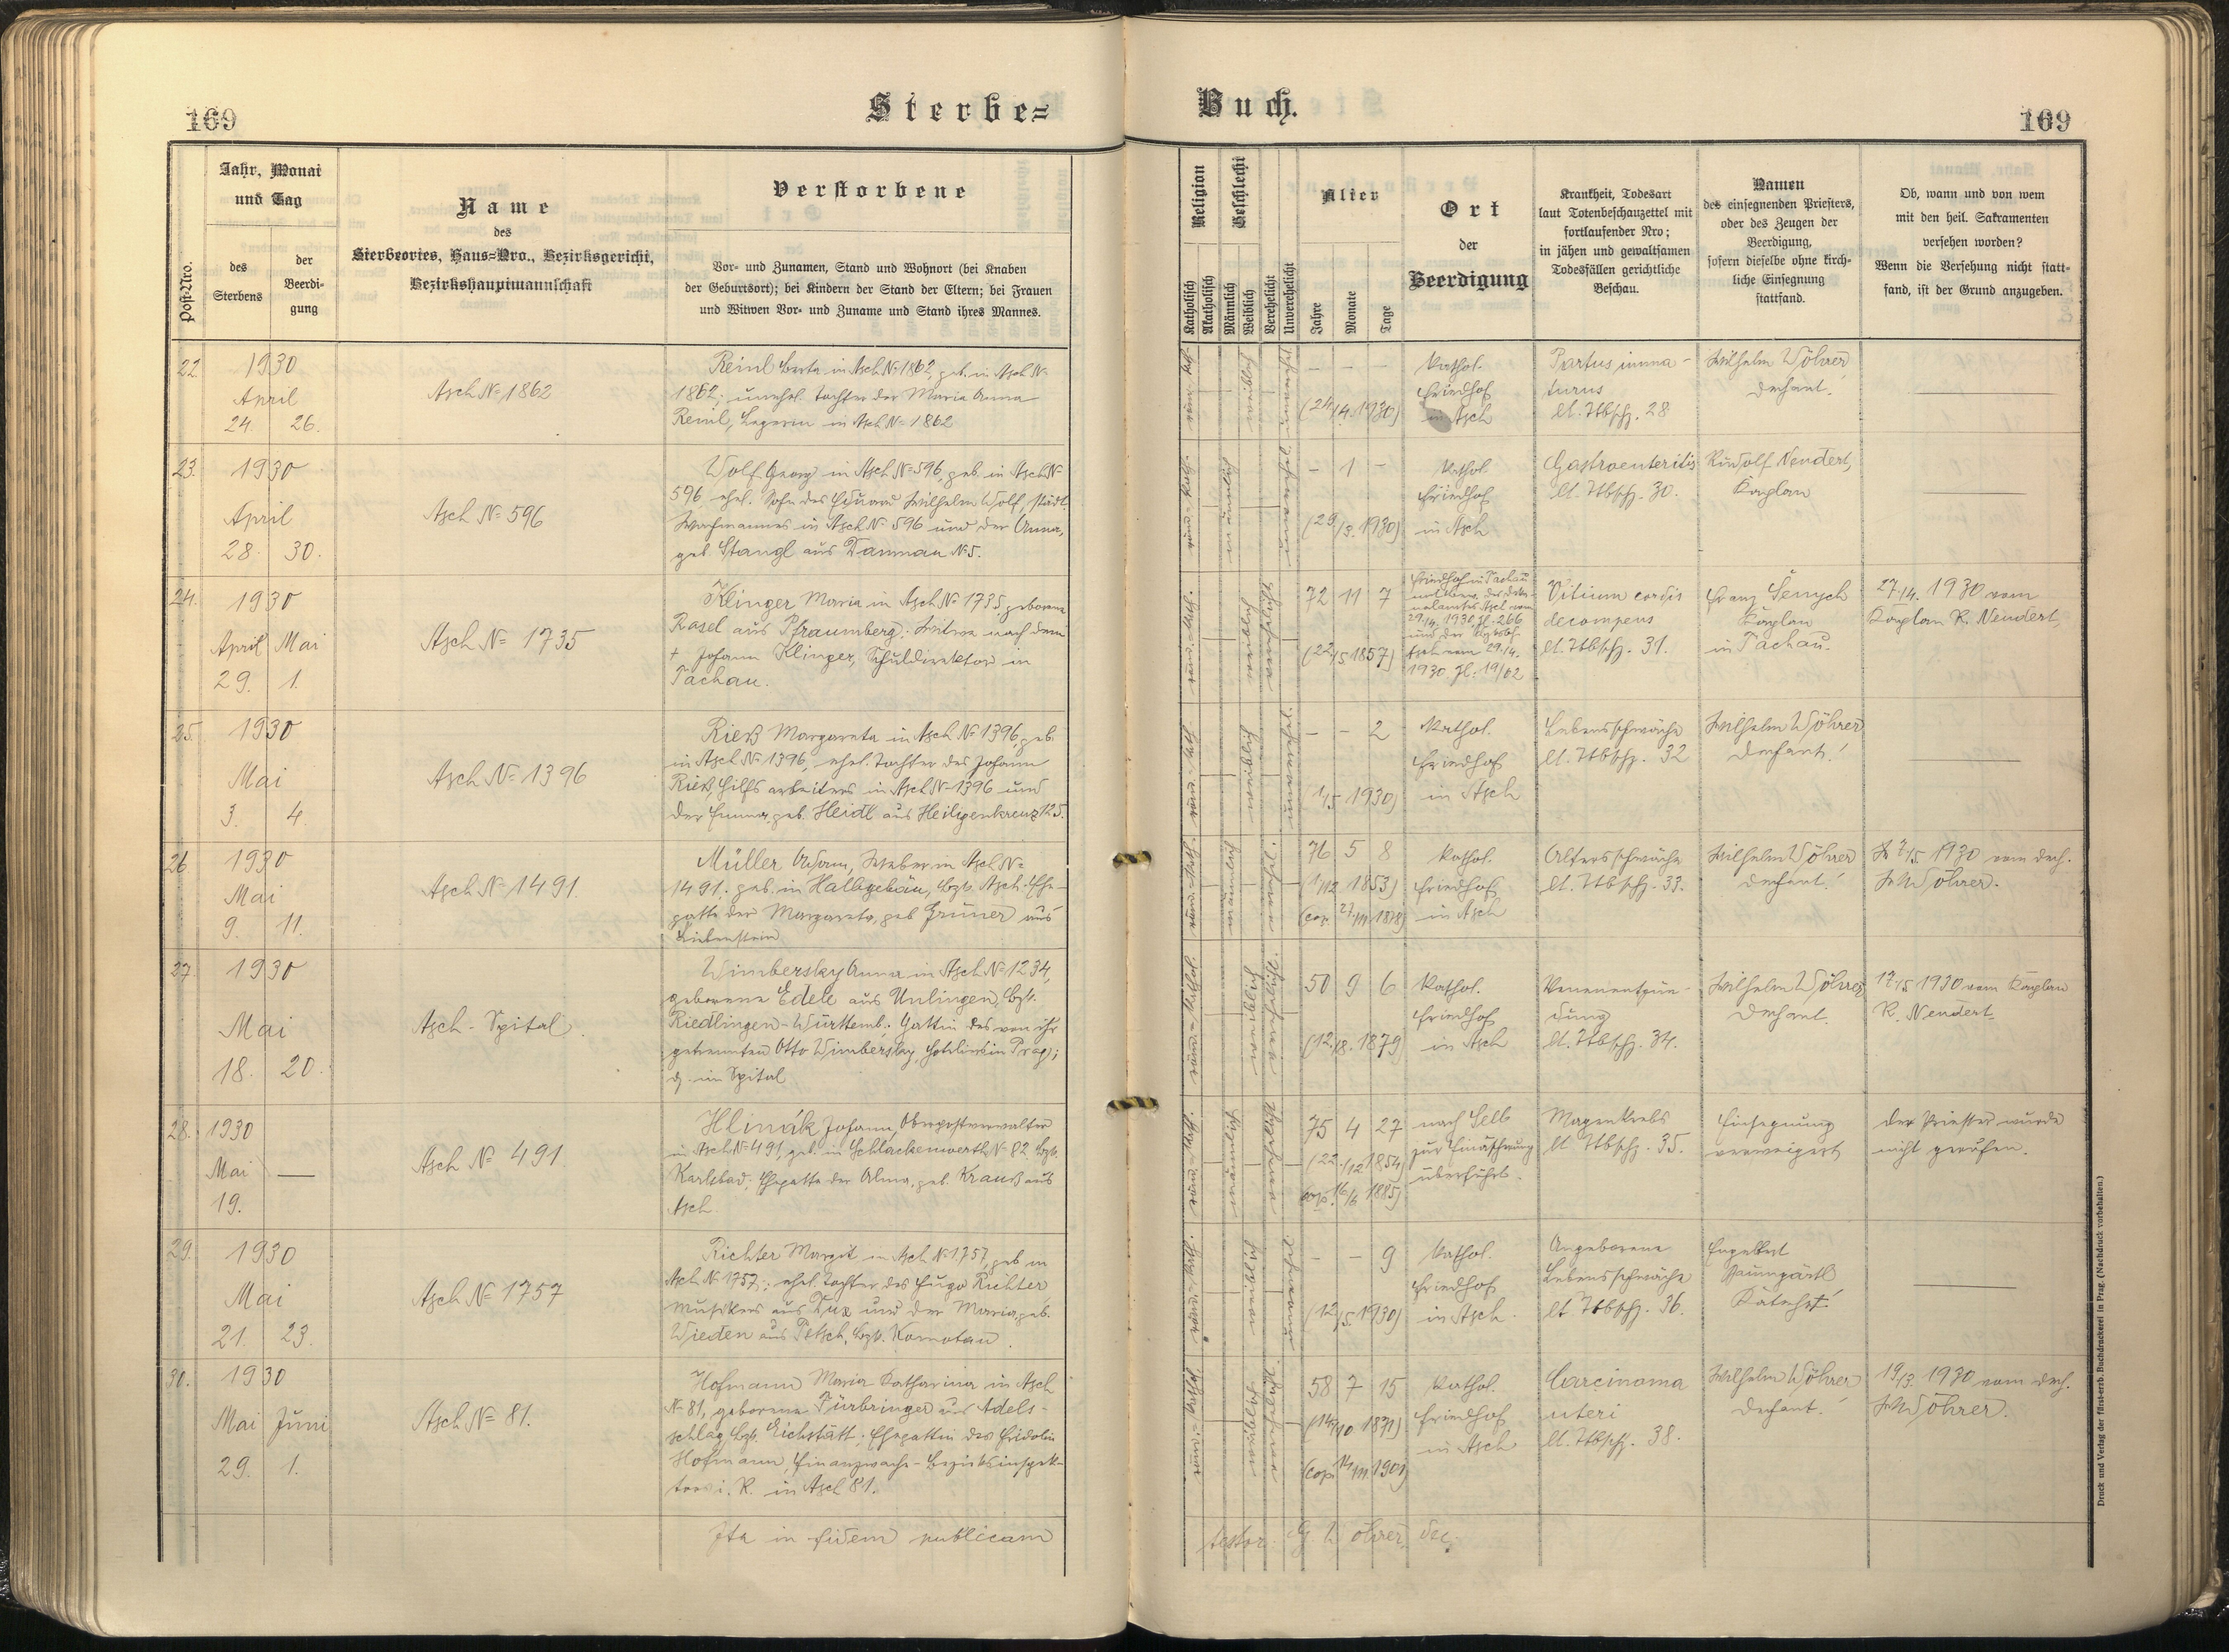 169
Sterbe=
Jahr, Monat
und Tag
Post-Nro.
des
Sterbens
der
Beerdi-
gung
Name
des
Sterbeortes, Haus=Nro., Bezirksgericht,
Bezirkshauptmannschaft
Verstorbene
Vor- und Zunamen, Stand und Wohnort (bei Knaben
der Geburtsort); bei Kindern der Stand der Eltern; bei Frauen
und Witwen Vor- und Zuname und Stand ihres Mannes.
22.
1930
April
24. 26.
Asch No 1862
Reinl Berta in Asch No 1862, geb. in Asch No
1862; unehel. Tochter der Maria Anna
Reinl, Legerin in Asch No 1862
23.
1930
April
28. 30.
Asch No 596
Wolf Georg in Asch No 596, geb. in Asch No
596, ehel. Sohn des Eduard Wilhelm Wolf, städt.
Wachmannes in Asch No 596 und der Anna,
geb Stangl aus Damnau No 5.
24.
1930
April Mai
29. 1.
Asch No 1735
Klinger Maria in Asch No 1735 geborene
Rasel aus Pfraumberg; Witwe nach dem
† Johann Klinger, Schuldirektor in
Tachau.
25.
1930
Mai
3. 4.
Asch No 1396
Rieß Margareta in Asch No 1396, geb.
in Asch No 1396, ehel. Tochter des Johann
Rieß, Hilfsarbeiters in Asch No 1396 und
der Emma, geb. Heidl aus Heiligenkreuz 125.
26
1930
Mai
9. 11.
Asch No 1491.
Müller Adam, Weber in Asch No
1491. geb. in Halbgebäu, Bzk. Asch. Ehe-
gatte der Margareta, geb Grüner aus
Liebenstein
27.
1930
Mai
18. 20.
Asch - Spital.
Wimbersky Anna in Asch No 1234,
geborene Edele aus Unlingen, Bzk.
Riedlingen-Württemb.; Gattin des von ihr
getrennten Otto Wimbersky, in Prag;
z. im Spital
28.
1930
Mai —
19.
Asch No 491
Hlinák Johann, Oberpostverwalter
in Asch No 491, geb. in Schlackenwerth No 82 Bzk.
Karlsbad, Ehegatte der Alma, geb. Krauß aus
Asch.
29.
1930
Mai
21. 23.
Asch No 1757
Richter Margit in Asch No 1757, geb in
Asch No 1757; ehel. Tochter des Hugo Richter
Musikers aus Dux und der Maria, geb.
Wieden aus Petsch, Bzk. Komotau.
30.
1930
Mai Juni
29. 1.
Asch No 81.
Hofmann Maria Katharina in Asch
No 81, geborene Fürbringer aus Adels-
schlag, Bzk. Eichstätt; Ehegattin des Fridolin
Hofmann, Finanzwach-Bezirksinspek-
tors i. R. in Asch 81.
Ita in fidem publicam
Buch.
169
Religion
Geschlecht
Katholisch
Akatholisch
Männlich
Weiblich
Verehelicht
Unverehelicht
Alter
Jahre
Monate
Tage
Ort
der
Beerdigung
Krankheit, Todesart
laut Totenbeschauzettel mit
fortlaufender Nro;
in jähen und gewaltsamen
Todesfällen gerichtliche
Beschau.
Namen
des einsegnenden Priesters,
oder des Zeugen der
Beerdigung,
sofern dieselbe ohne kirch-
liche Einsegnung
stattfand.
Ob, wann und von wem
mit den heil. Sakramenten
versehen worden?
Wenn die Versehung nicht statt-
fand, ist der Grund anzugeben.
weiblich
– – –
(24/4.1930)
Kathol.
Friedhof
in Asch
Partus imma-
turus
lt. Ttbschz. 28
Wilhelm Wöhrer
Dechant.
männlich
– 1 –
(29/3. 1930)
Kathol.
Friedhof
in Asch
Gastroenteritis
lt. Ttbschz. 30.
Rudolf Nendert,
Kaplan
weiblich
72 11 7
(22/5 1857)
Friedhof in Tachau
29/4. 1930, Zl. 266
und der
Asch vom 29./4.
1930. Zl. 19/02
Vitium cordis
decompens
lt. Ttbschz. 31.
Franz Šenych
Kaplan
in Tachau.
27/4. 1930 vom
Kaplan R. Nendert,
weiblich
– – 2
(1/5 1930)
Kathol.
Friedhof
in Asch
Lebensschwäche
lt. Ttbschz. 32
Wilhelm Wöhrer
Dechant!
männlich
76 5 8
(1/12 1853)
(cop. 27/III 1878)
Kathol.
Friedhof
in Asch
Altersschwäche
lt. Ttbschz. 33.
Wilhelm Wöhrer
Dechant!
1930 vom Dech.
W. Wöhrer.
weiblich
50 9 6
(12./8. 1879)
Kathol.
Friedhof
in Asch
Venenentzün-
dung
lt. Ttbschz. 34.
Wilhelm Wöhrer
Dechant.
17/5 1930 vom Kaplan
R. Nendert
männlich
75 4 27
(22./12 1854)
cop. 16/6 1885)
nach Selb
zur Einäscherung
überführt.
Magenkrebs
lt Ttbschz. 35.
Einsegnung
verweigert
Der Priester wurde
nicht gerufen.
weiblich
– – 9
(12/5. 1930)
Kathol.
Friedhof
in Asch.
Angeborene
Lebensschwäche
lt Ttbschz. 36.
Engelbert
Baumgärtl
Katechet!
weiblich
58 7 15
(14/10 1871)
(cop. 14/III. 1901)
Kathol.
Friedhof
in Asch
Carcinoma
uteri
lt. Ttbschz. 38.
Wilhelm Wöhrer
Dechant.
19/3. 1930 vom Dech.
W. Wöhrer.
testor: G. Wöhrer, Dec.
Druck und Verlag der fürst-erzb. Buchdruckerei in Prag. (Nachdruck vorbehalten.)